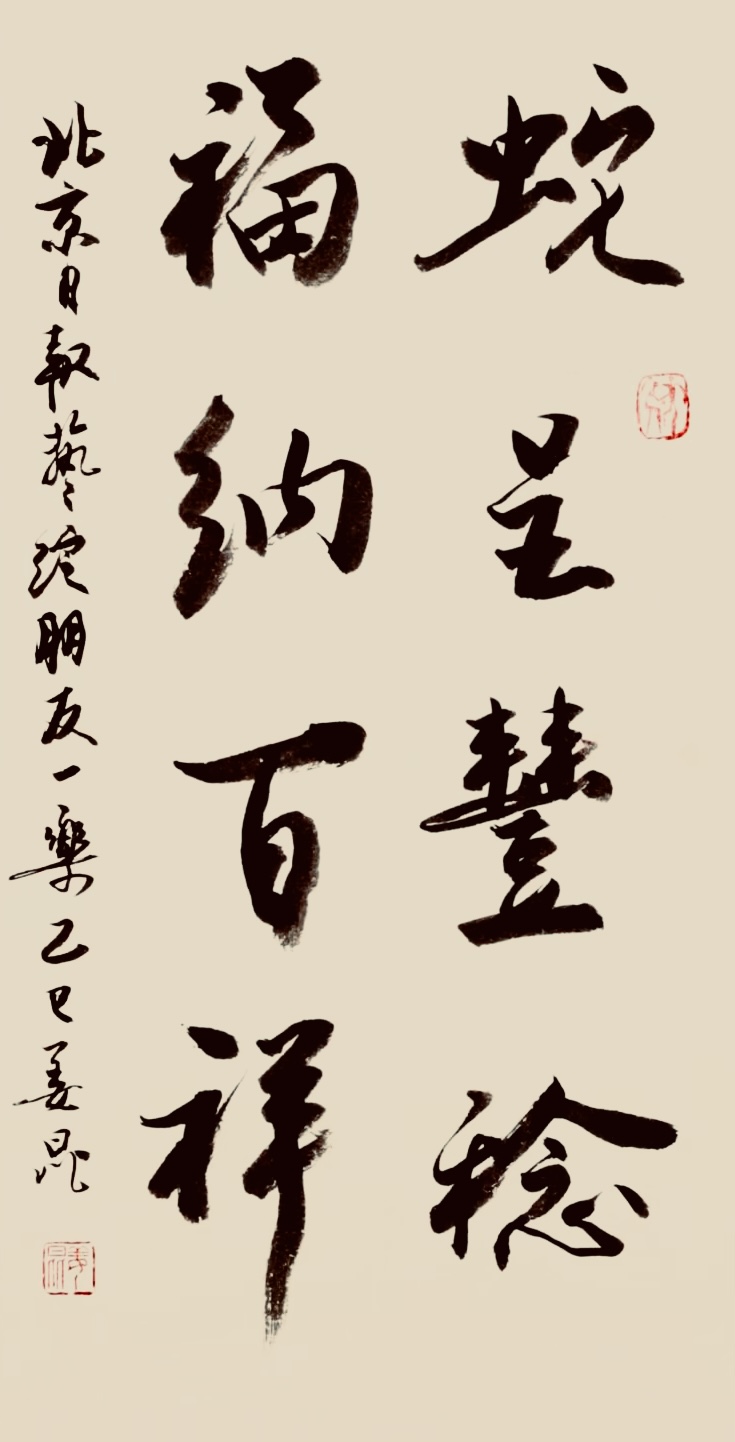 蛇呈豐稔
福納百祥
北京日報藝綻朋友一樂乙巳姜昆